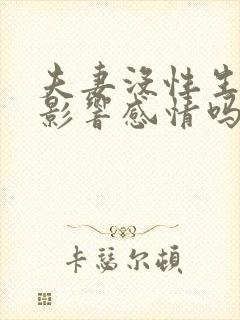 夫妻没性生
影響感情吗
卡瑟尔頓